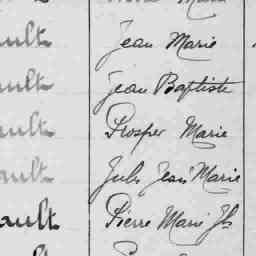 ault Jean Marie
ault Jean Baptiste
ault Prosper Marie
ault Jules Jean Marie
ault Pierre Marie Jh